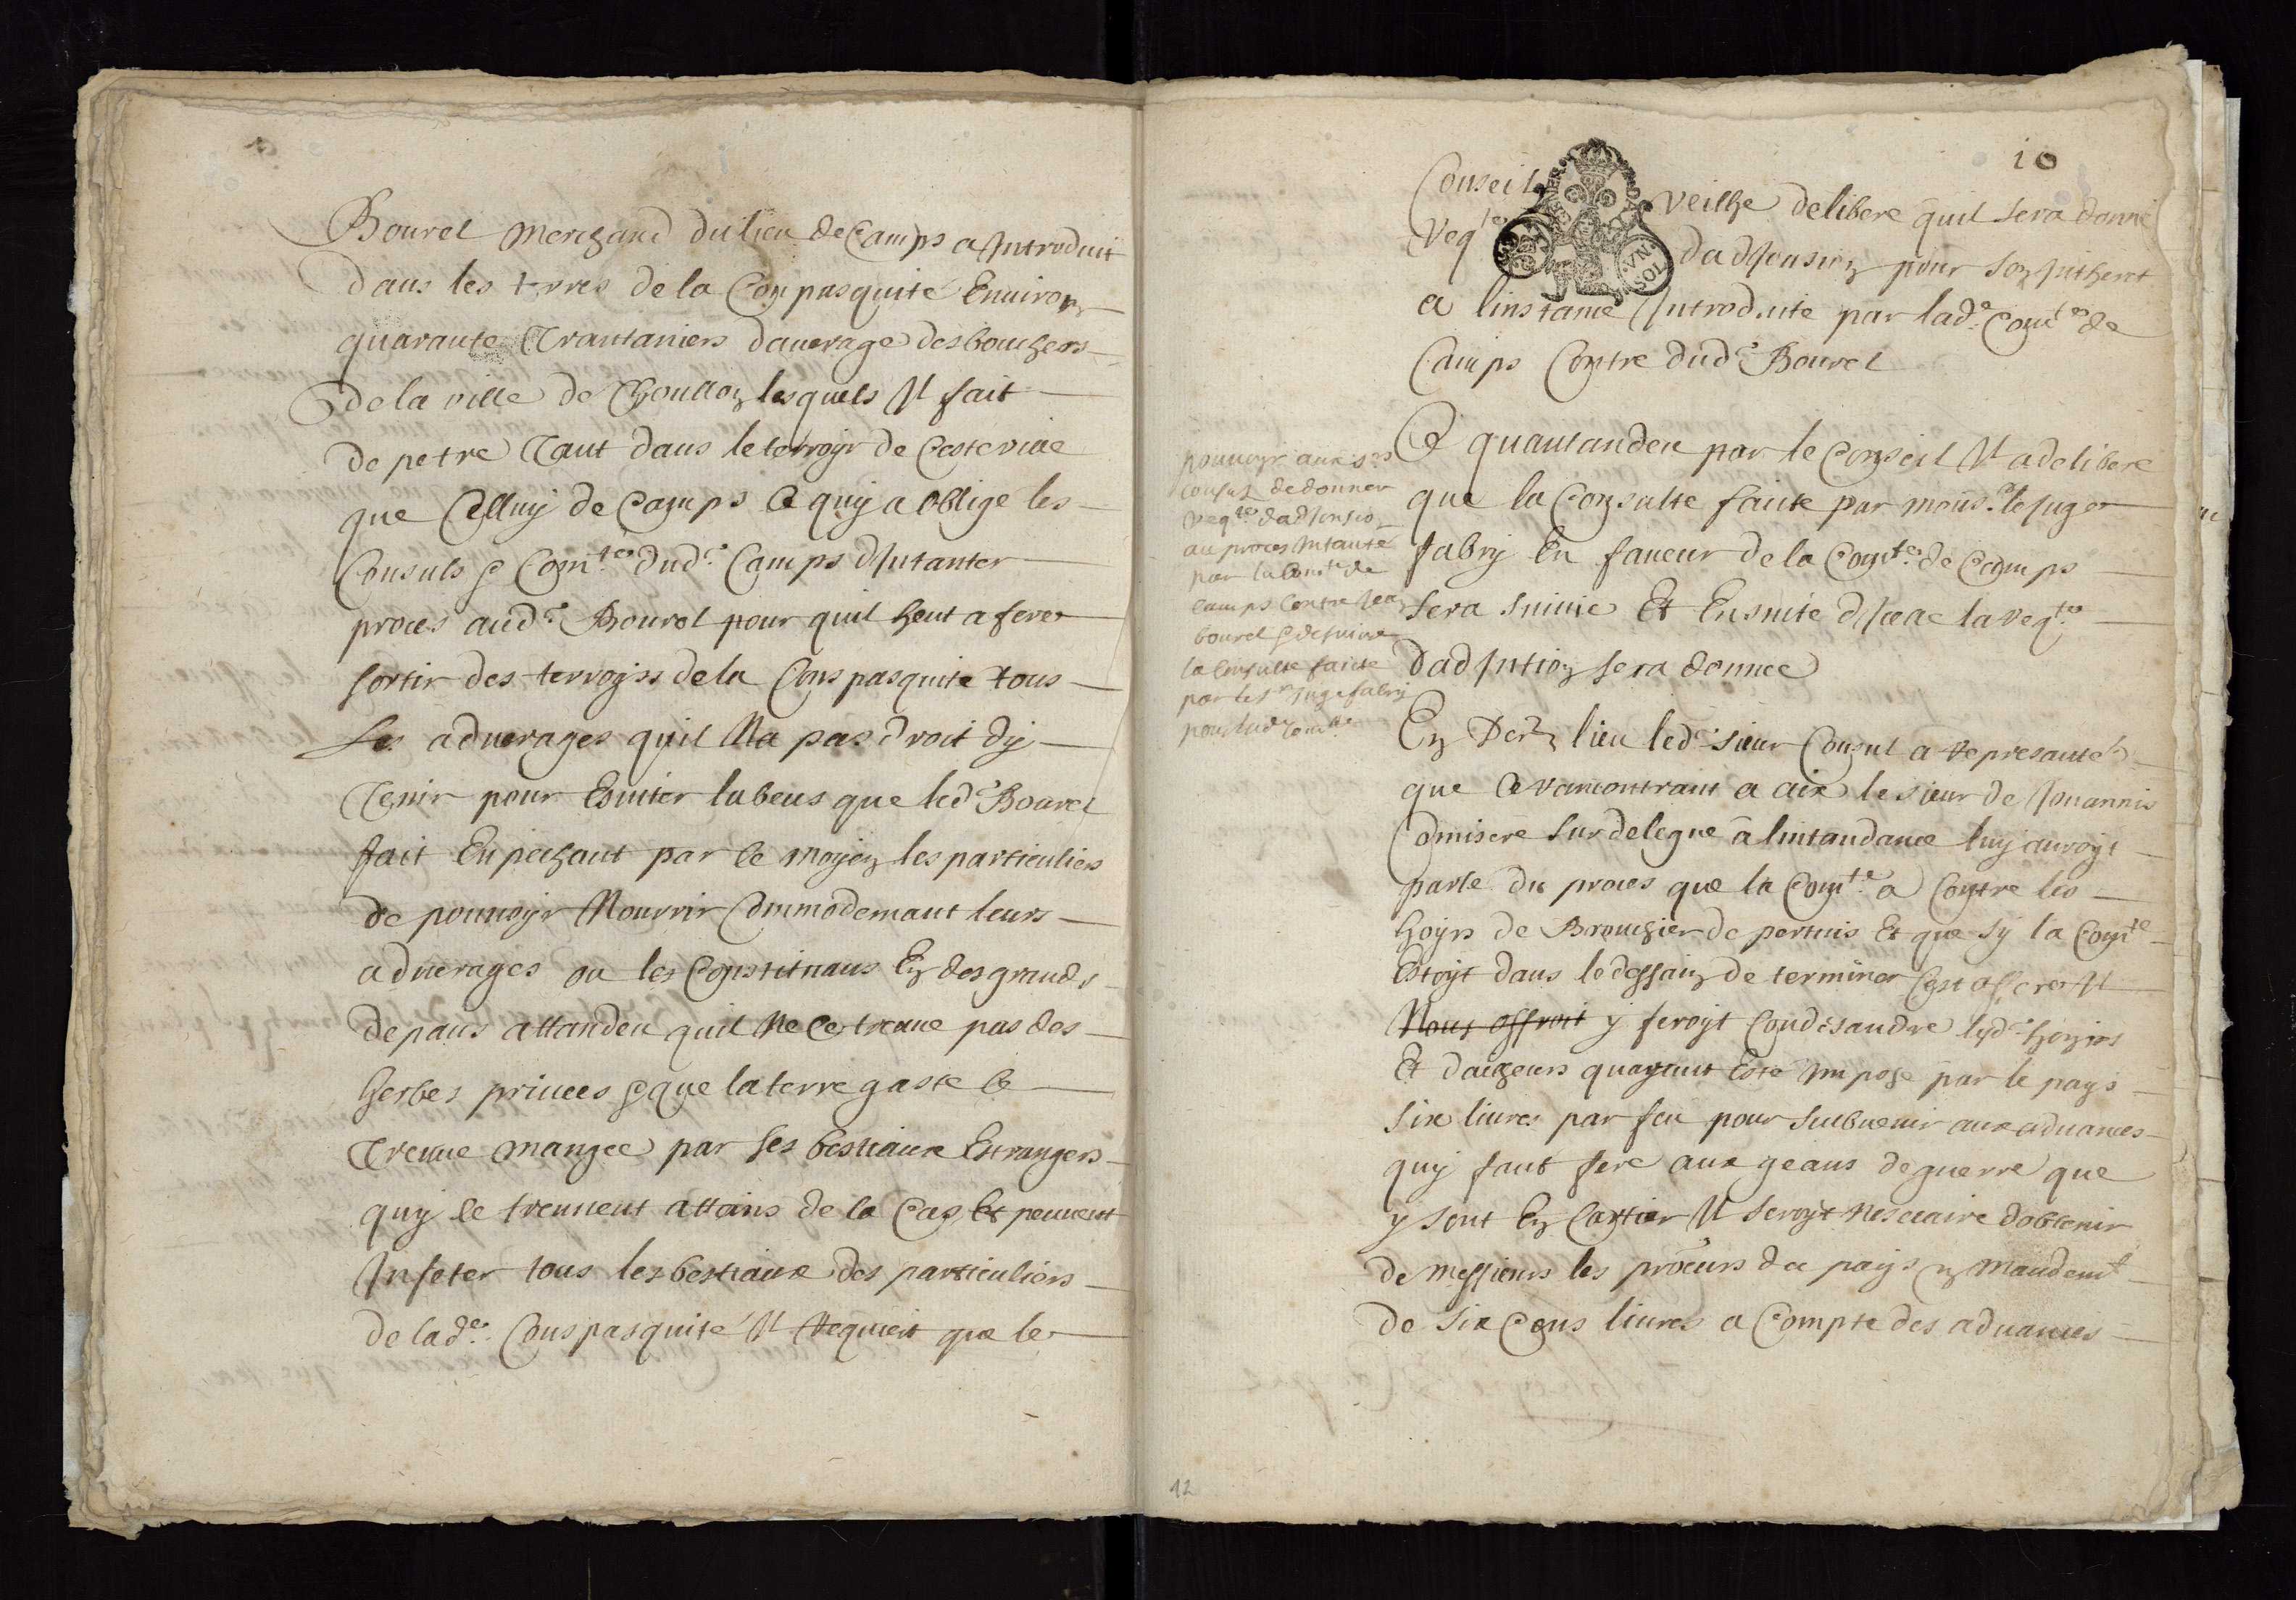 Bourel merchand du lieu de Camps a Introduit
dans les terres de la Conpasquité Enuiron
quarante Trantaniers dauerage des bouchers
de la ville de Thoullon lesquels Il fait
depetre Tant dans le terroyr de Ceste ville
que Celluy de Camps Ce quy a oblige les
Consuls & Com.te dud.t Camps dIntanter
proces aud.t Bourel pour quil heut a fere
sortir des terroyrs de la Conspasquite tous
les aduerages quil Na pas droit dy
Tenir pour Euiter labeus que led.t Bourel
fait En pechant par Ce moyen les particuliers
de pouuoyr Nourrir Commodemant leurs
aduerages ou les Constituans En des grands
depans attandeu quil Ne Ce treuue pas des
herbes prinees & que la terre gaste Ce
Treuue mangee par ses bestiaux Estrangers
quy se treuuent attains de la Cas Et peuuent
Infeter tous les bestiaux des particuliers
de lad.e Conspasquite Il Requiert que le
10
Conseil veilhe delibere quil sera donné
Req.te dadJonsion pour son Intheret
a linstance Introduite par lad.e Com.te de
Camps Contre dud.t Bourel
VN SOL
pouuoyr aux s.rs
consuls de donner
req.te dadJonsion
au proces Intanté
par la Com.te de
camps Contre Jean
bourel & de suiure
la Consulte faicte
par le s.r Juge fabry
pour lad.e Com.te
Ce quantandeu par le Conseil Il a delibere
que la Consulte faite par mons.r le Juge
fabry En faueur de la Com.te de Camps
sera suiuie Et Ensuite dIcelle la req.te
dadIntion sera donnee
En Der.n lieu led.t sieur Consul a represanté
que Ce rancontrant a aix le sieur de Jouannis
Comisere surdelegue a lintandance luy auroyt
parle du proces que la Com.te a Contre les
hoyrs de Brouchier de pertuis Et que sy la Com.te
Estoyt dans le dessain de terminer Cest affere Il
Nous offroit y feroyt Condesandre lesd.ts hoyrs
Et dailheurs quayant Esté Imposé par le pays
six liures par feu pour subuenir aux aduances
quy faut fere aux geans de guerre que
y sont En Cartier Il seroyt Nesecaire dobtenir
de messieurs les procurs du pays un mandem.t
de six Cens liures a Compte des aduances
12